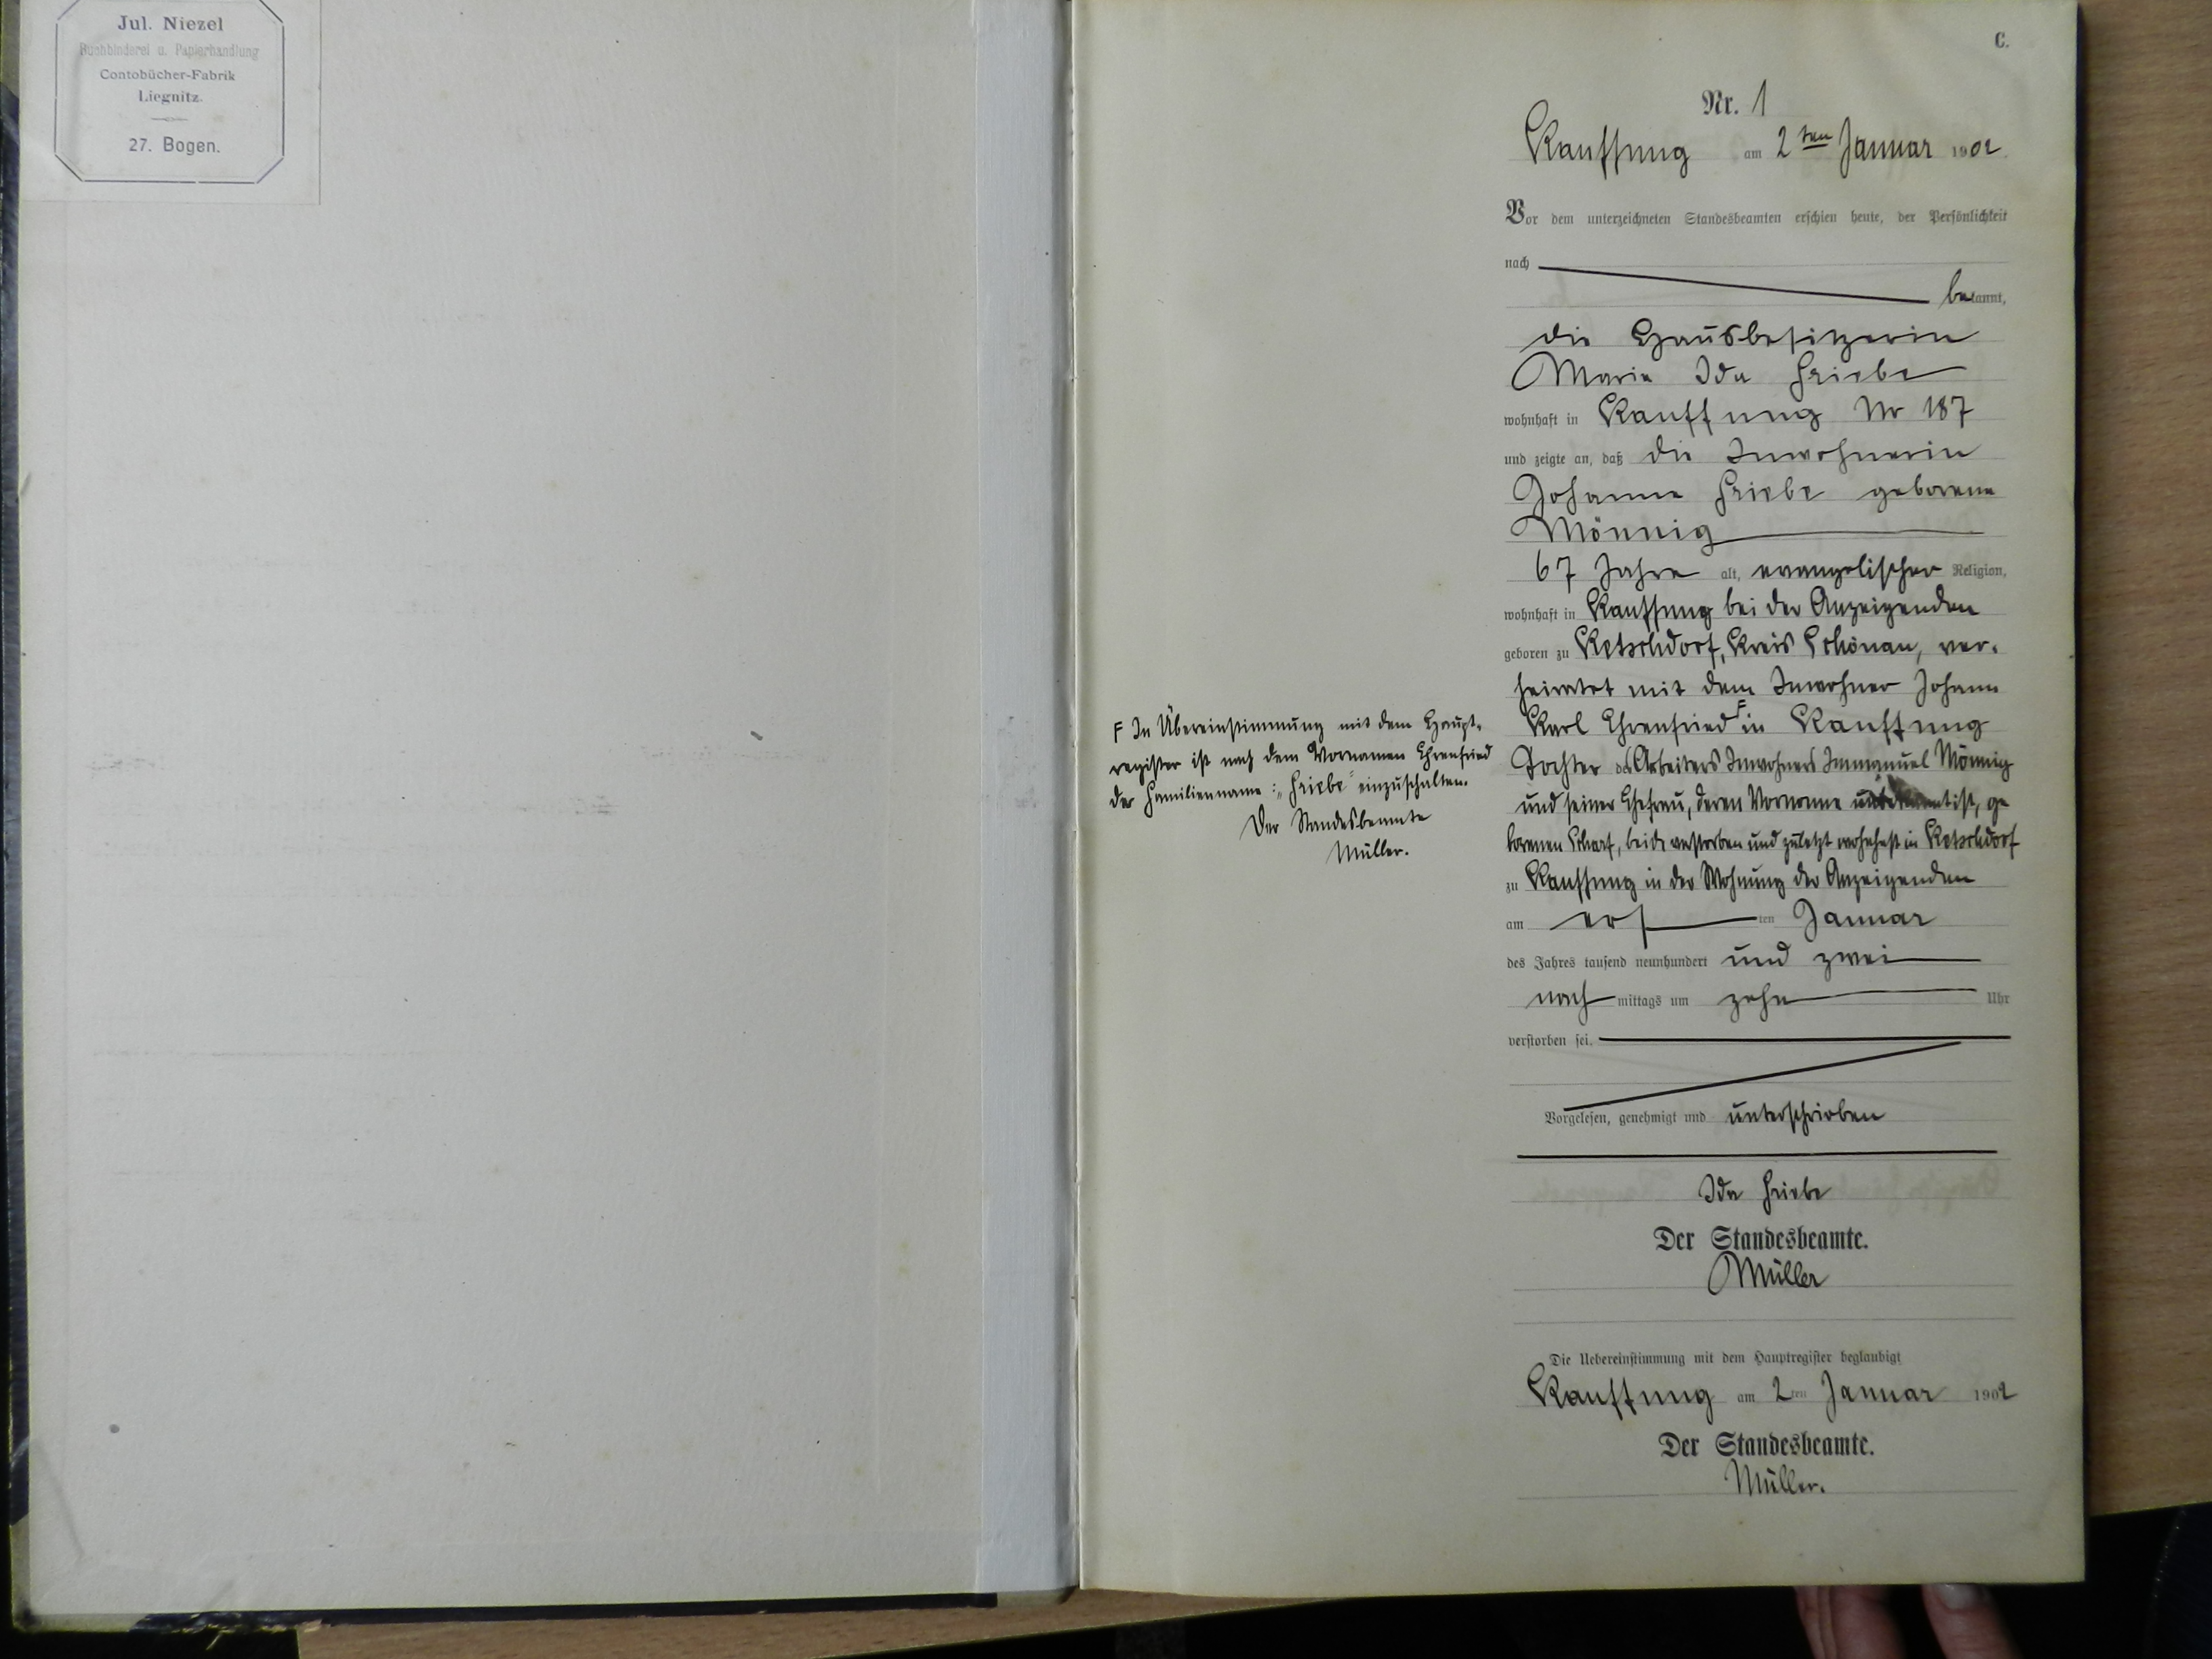 Jul. Niezel
Buchbinderei u. Papierhandlung
Contobücher-Fabrik
Liegnitz.
27. Bogen.
C.
Nr. 1
Kauffung am 2ten Januar 1902.
Vor dem unterzeichneten Standesbeamten erschien heute, der Persönlichkeit
nach
bekannt,
die Hausbesitzerin
Maria Ida Friebe
wohnhaft in Kauffung Nr 187
und zeigte an, daß die Inwohnerin
Johanne Friebe geborene
Mönnig
67 Jahre alt, evangelischer Religion,
wohnhaft in Kauffung bei der Anzeigenden
geboren zu Ketschdorf, Kreis Schönau, ver-
heiratet mit dem Inwohner Johann
Karl Ehrenfried F in Kauffung
Tochter des Arbeiters Inwohners Immanuel Mönnig
und seiner Ehefrau, deren Vorname unbekannt ist, ge
borenen Scharf, beide verstorben und zuletzt wohnhaft in Ketschdorf
zu Kauffung in der Wohnung der Anzeigenden
am ersten Januar
des Jahres tausend neunhundert und zwei
nachmittags um zehn Uhr
verstorben sei.
Vorgelesen, genehmigt und unterschrieben
Ida Friebe
Der Standesbeamte.
Müller
Die Uebereinstimmung mit dem Hauptregister beglaubigt
Kauffung am 2ten Januar 1902
Der Standesbeamte.
Müller.
F In Übereinstimmung mit dem Haupt-
register ist nach dem Vornamen Ehrenfried
der Familienname: "Friebe" einzuschalten.
Der Standesbeamte
Müller.